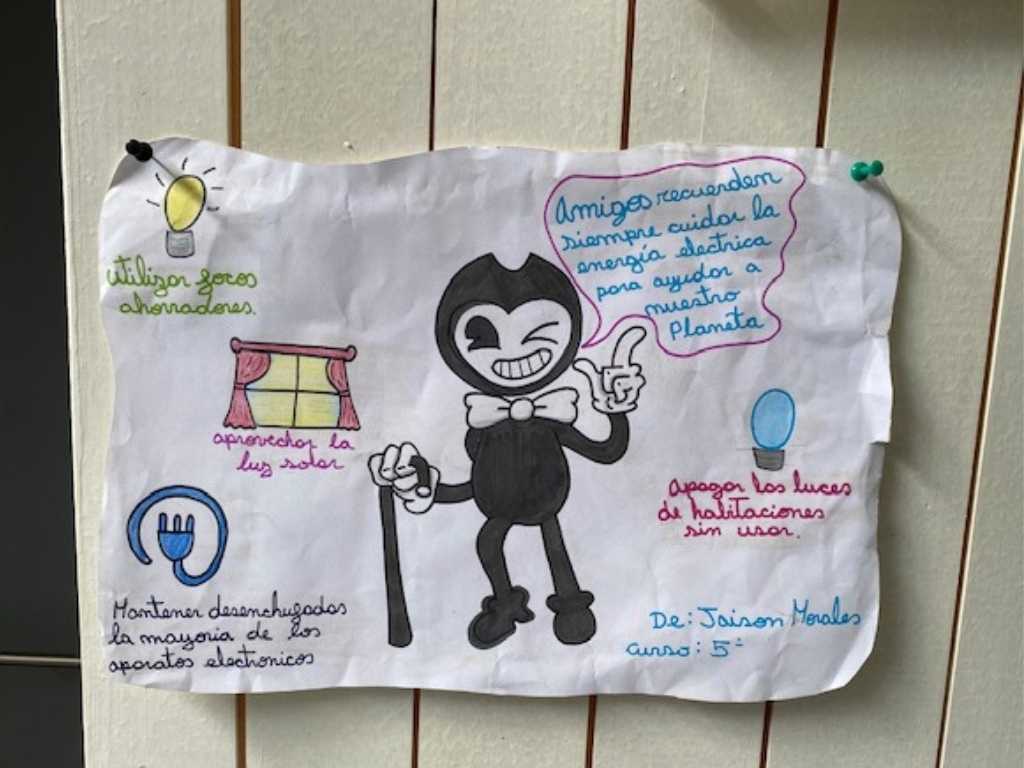 Amigos recuerden
siempre cuidar la
energía electrica
para ayudar a
nuestro
Planeta
Utilizar focos
ahorradores.
aprovechar la
luz solar
Apagar las luces
de habitaciones
sin usar.
Mantener desenchufados
la mayoria de los
aparatos electronicos
De: Jaison Morales
curso: 5º